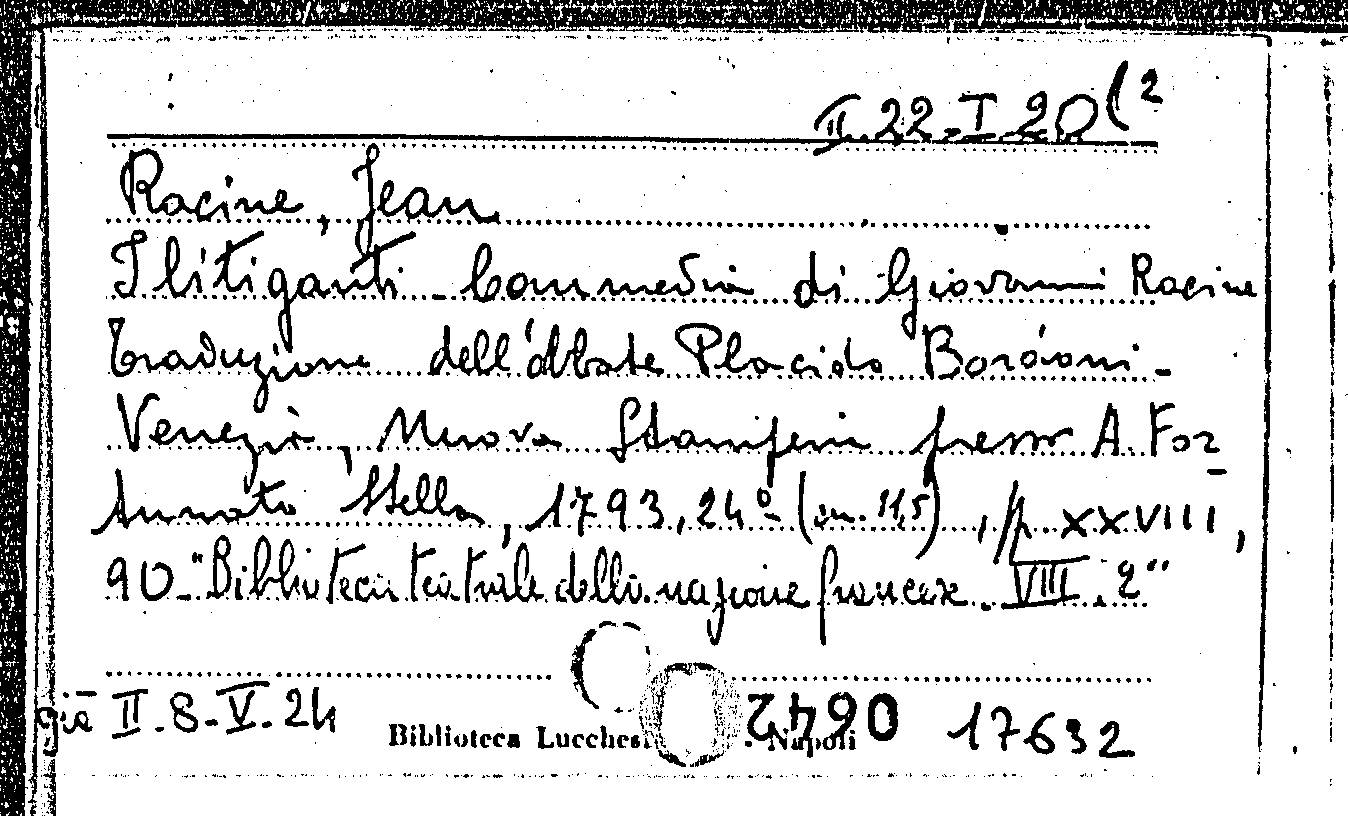 II.22.I.20(2
Racine, Jean
I litiganti. Commedia di Giovanni Racine
Traduzione dell'abbate Placido Bordoni -
Venezia, Nuova Stamperia presso A. For
tunato Stella, 1793, 24º (cm. 11,5), pp. XXVIII,
90 - "Biblioteca teatrale della nazione francese. VIII. 2"
già II.8.V.24
Biblioteca Lucchesi . Napoli 17632